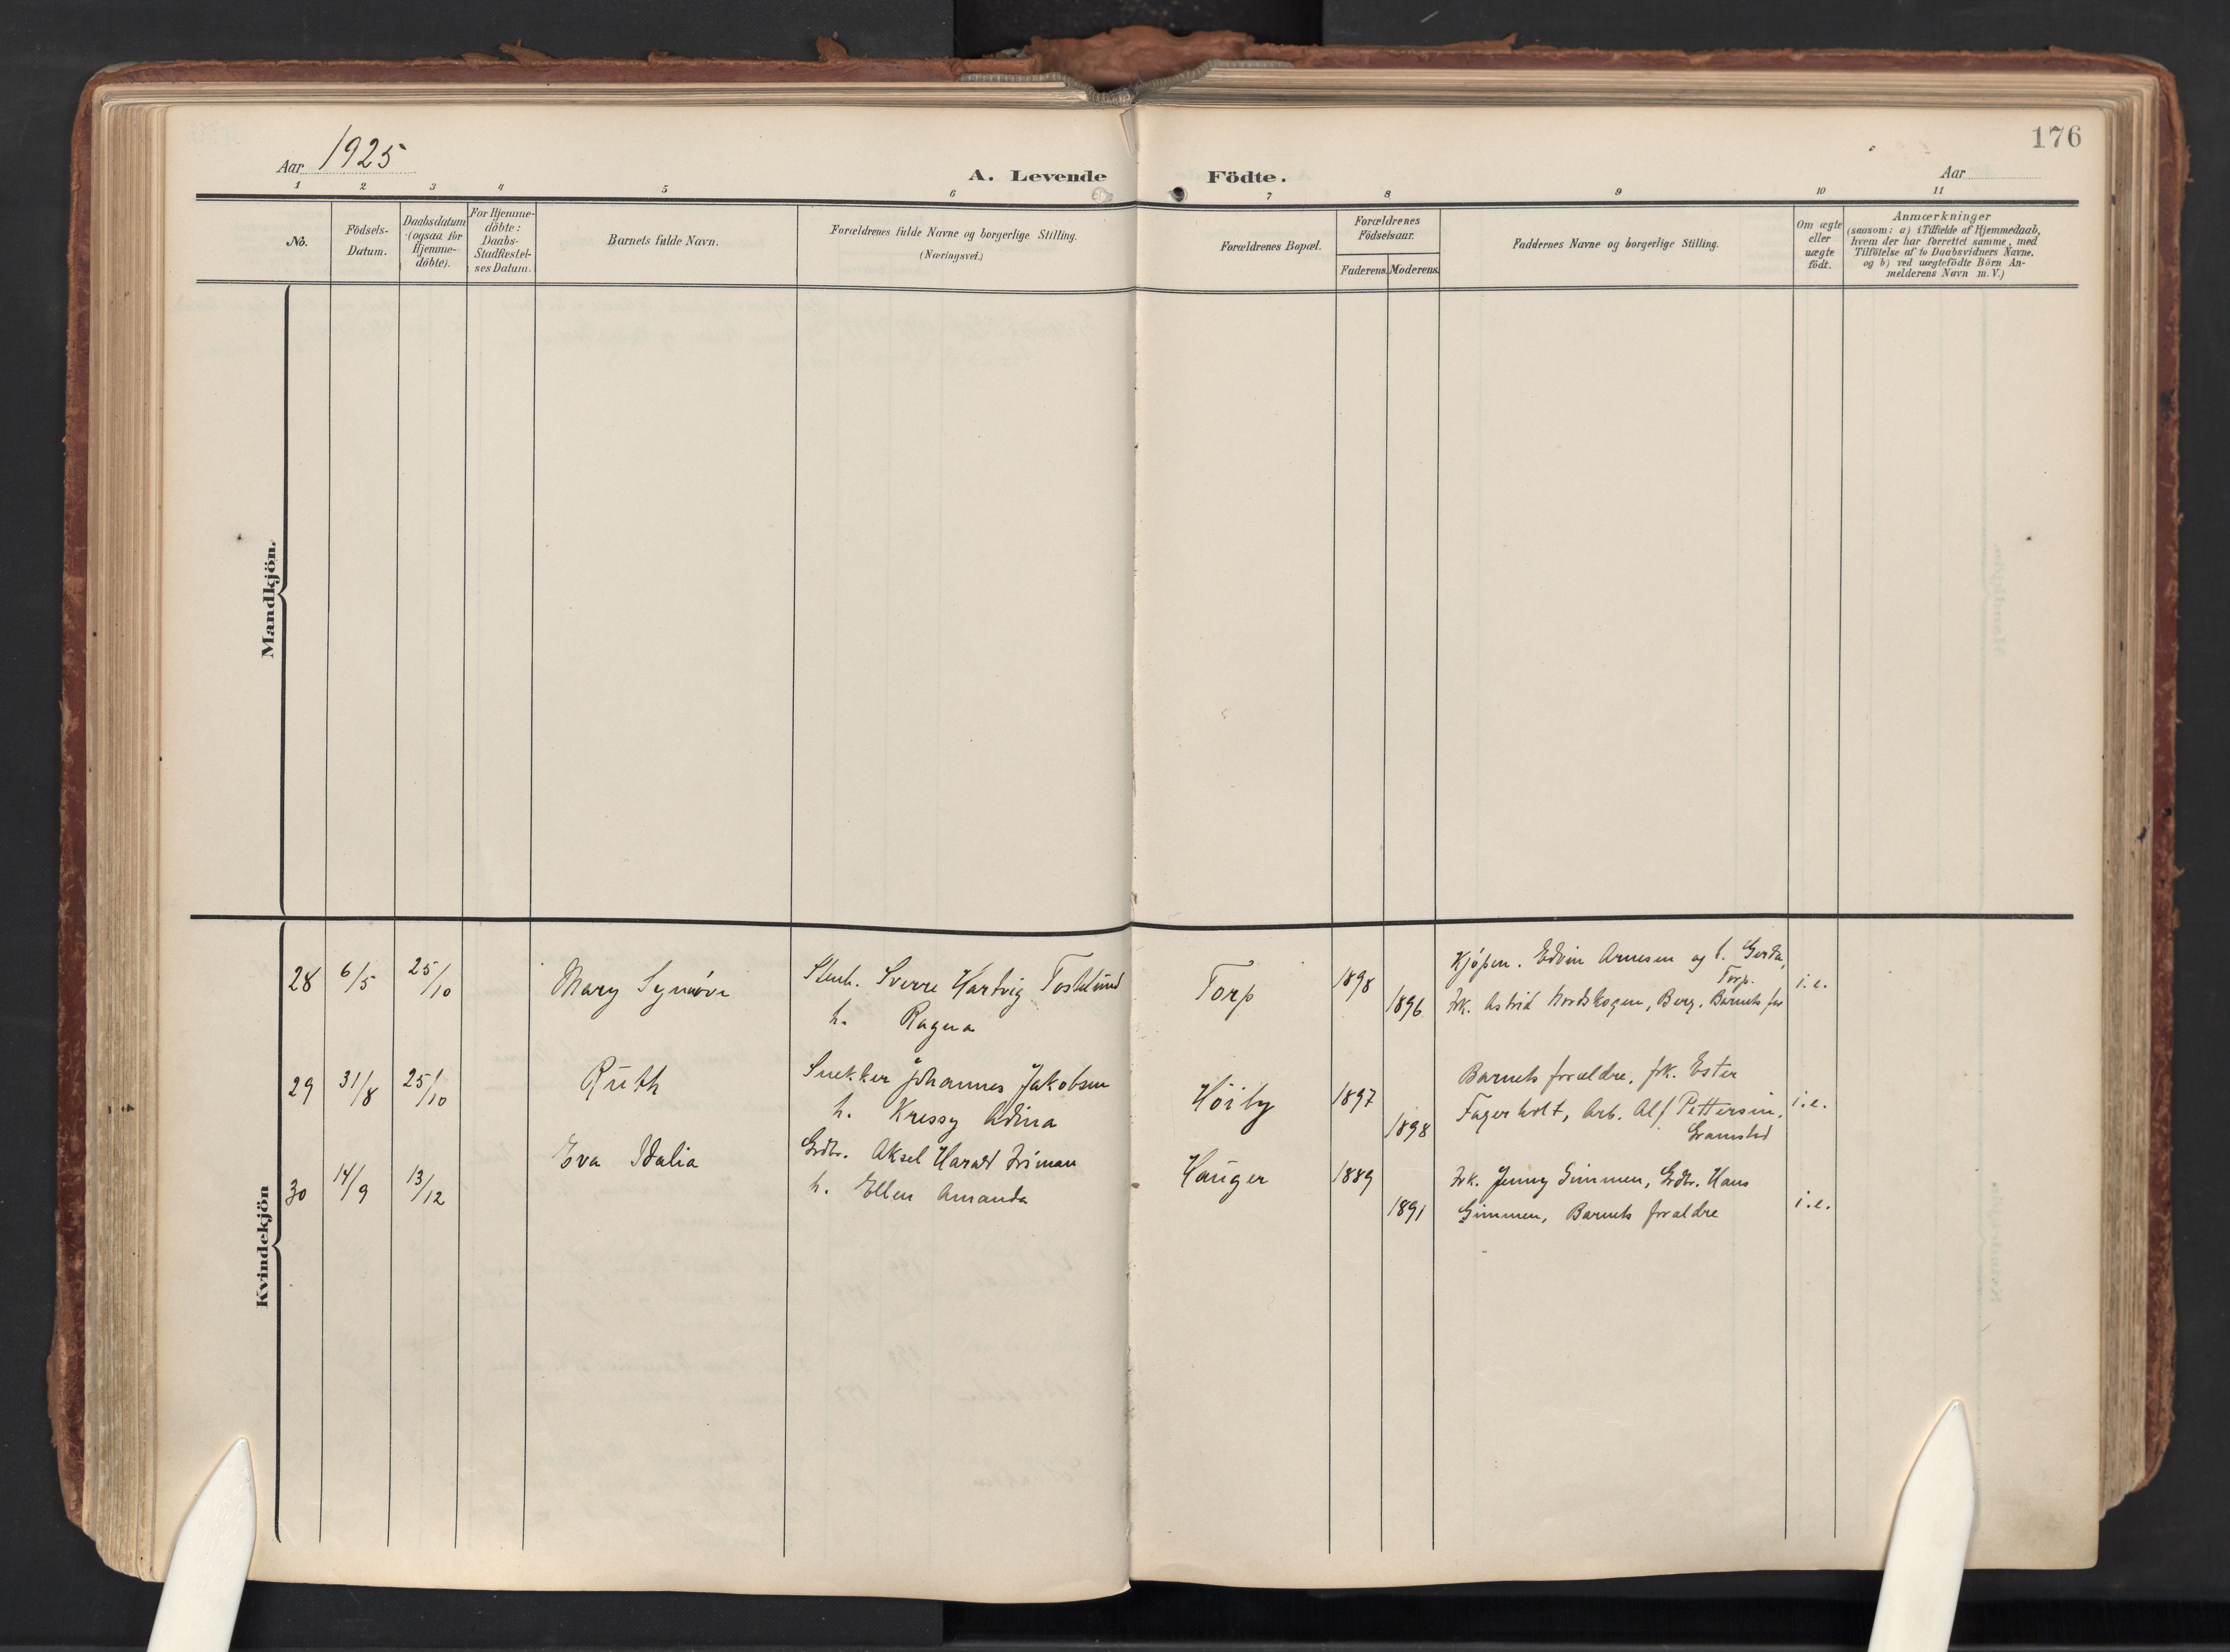 176
Aar 1925
A. Levende Födte.
Aar
1 2 3 4 5 6 7 8 9 10 11
No.
Födsels-
Datum.
Daabsdatum
(ogsaa for
Hjemme-
döbte).
For Hjemme-
döbte:
Daabs-
Stadfæstel-
ses Datum.
Barnets fulde Navn.
Forældrenes fulde Navne og borgerlige Stilling.
(Næringsvei.)
Forældrenes Bopæl.
Forældrenes
Födselsaar.
Faderens. Moderens.
Faddernes Navne og borgerlige Stilling.
Om ægte
eller
uægte
födt.
Anmærkninger
(saasom: a) i Tilfælde af Hjemmedaab,
hvem der har forrettet samme, med
Tilföielse af to Daabsvidners Navne,
og b) ved uægtefödte Börn An-
melderens Navn m. V.)
Mandkjön.
Kvindekjön
28 6/5 25/10 Mary Synnöve
Stenh. Sverre Hartvig
h. Ragna
Torp 1898
1896
Kjöpm. Edvin Arnesen og h. Gerda,
Torp.
Frk. Astrid Nordskogen, Berg. Barnets far
i.e.
29 31/8 25/10 Ruth
Snekker Johannes Jakobsen
h. Kressy Adina
Höiby 1897
1898
Barnets forældre, frk. Ester
Fagerholt, Arb. Alf Pettersen,
i.e.
30 14/9 13/12 Eva Idalia
Grdbr. Aksel Harald
h. Ellen Amanda
Hauger 1889
1891
Frk. Jenny Gimmen, Grdbr. Hans
Gimmen, Barnets forældre
i.e.